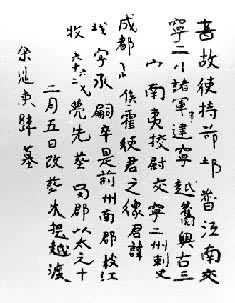 晉故使持節都督江南交
寧二州諸軍建寧越嶲興古三
南夷校尉交寧二州刺史
成都侯霍使君之像君諱
字承嗣卒是荊州南郡枝江
六十六歲薨先葬蜀郡以太元十
二月五日改葬朱提越渡
余魂來歸墓